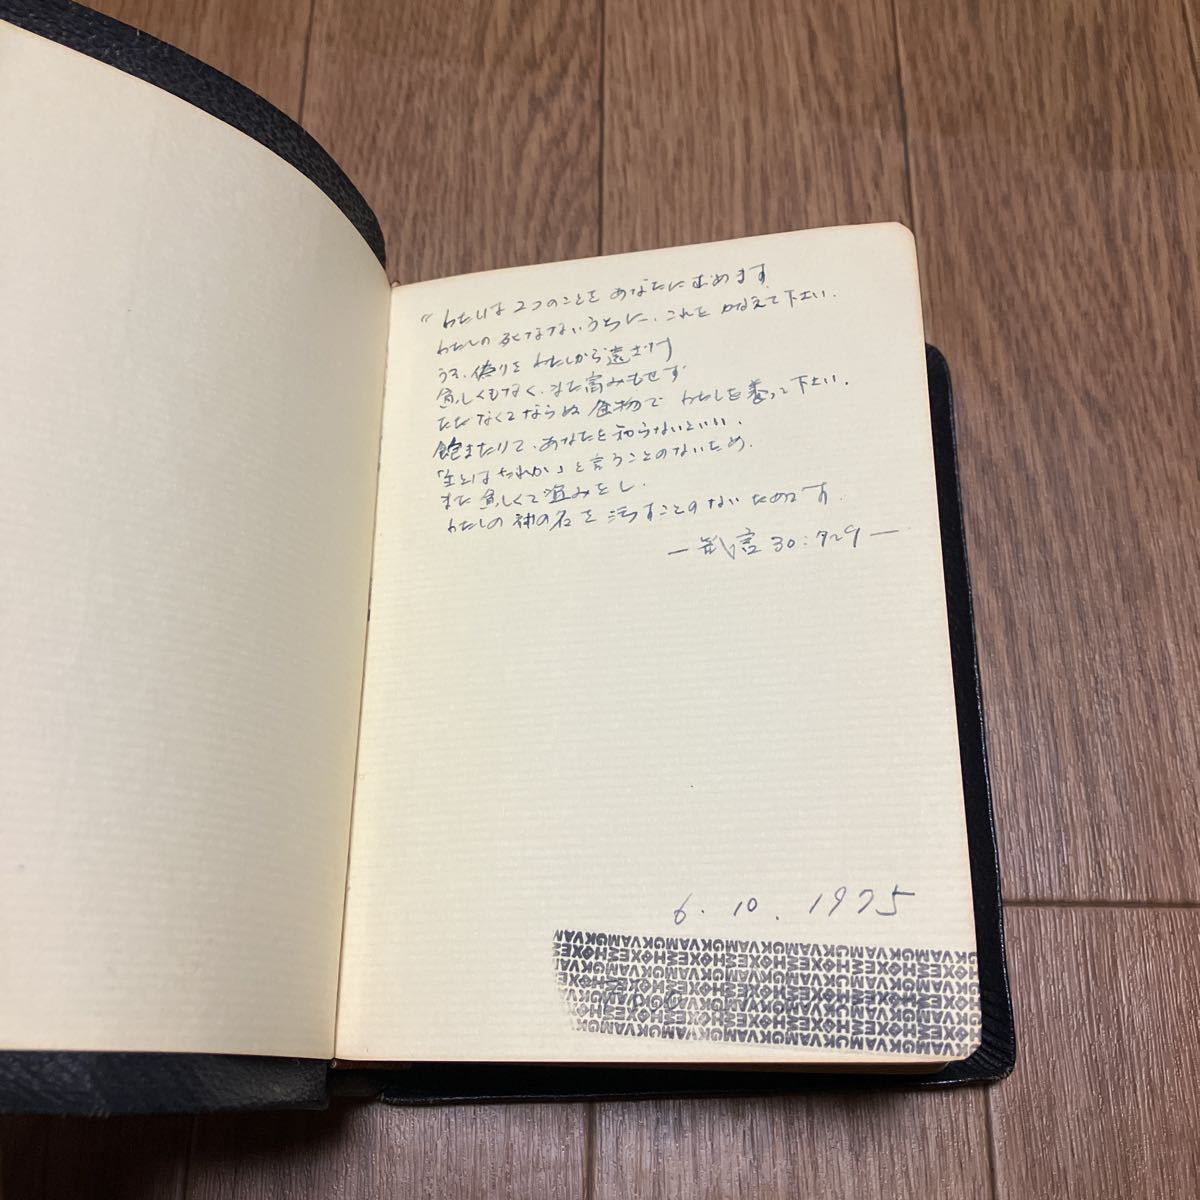 "わたしは2つのことをあなたに求めます
わたしの死なないうちに、これをかなえて下さい.
うそ、偽りをわたしから遠ざけ
貧しくもなく、また富みもせず
ただなくてならぬ食物でわたしを養って下さい.
飽きたりて、あなたを知らないといい、
「主とはだれか」と言うことのないため.
また貧しくて盗みをし、
わたしの神の名を汚すことのないためです.
— 箴言 30:7〜9 —
6. 10. 1975